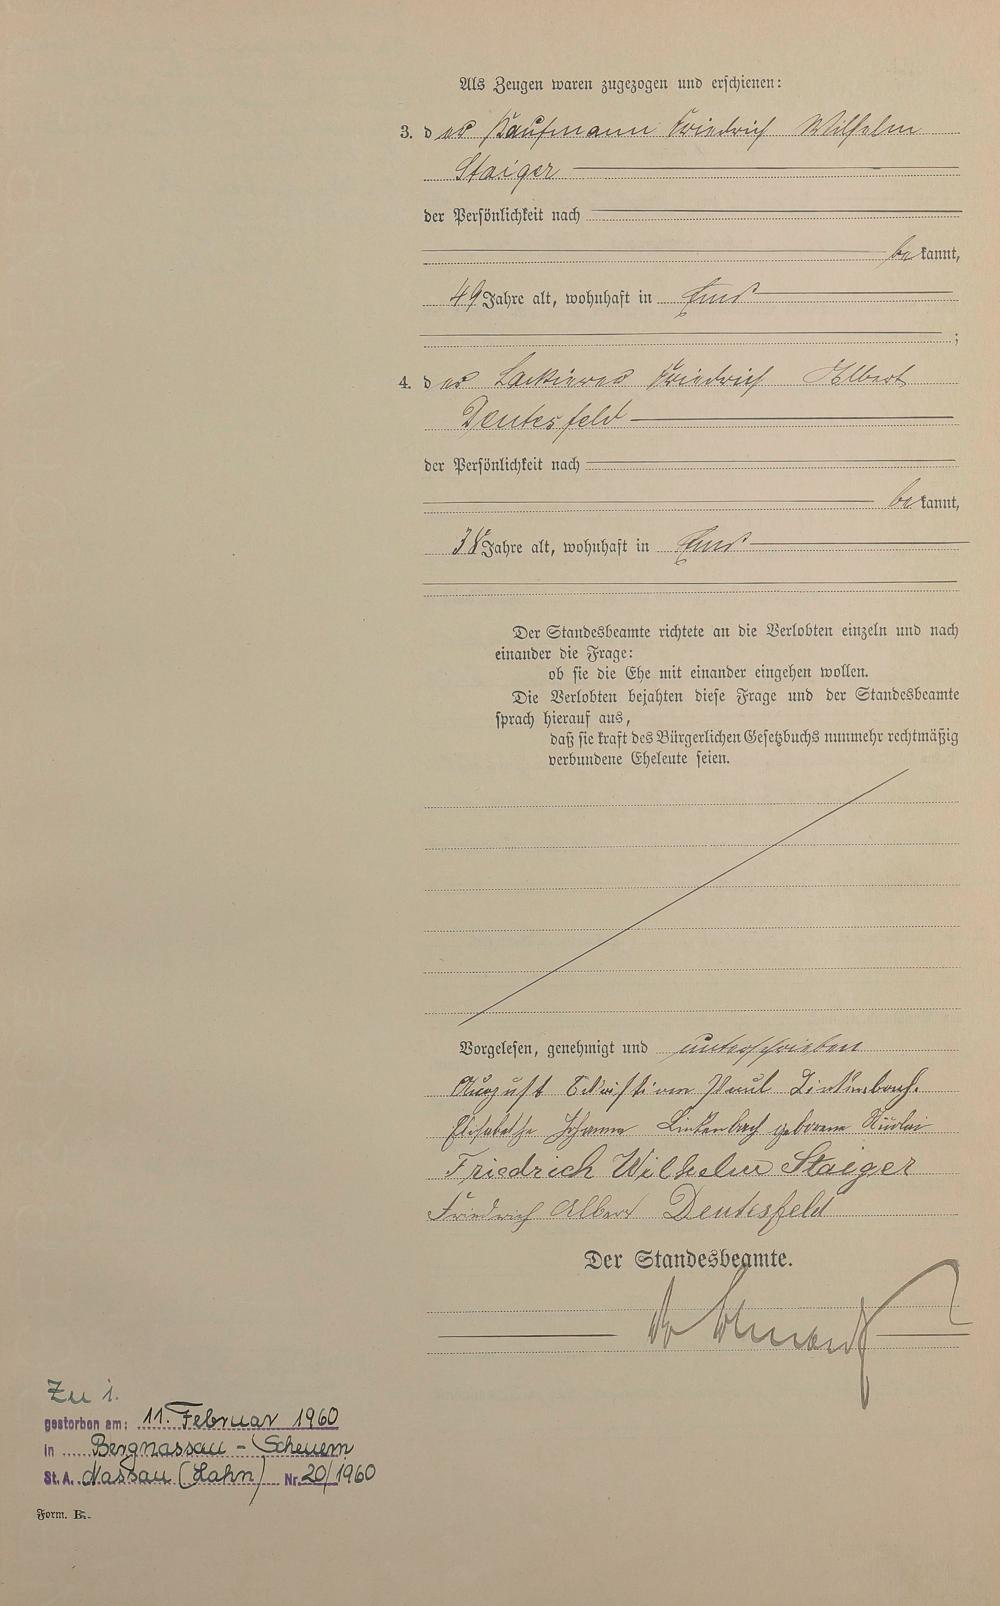 Als Zeugen waren zugezogen und erschienen:
3. der Kaufmann Friedrich Wilhelm
Staiger
der Persönlichkeit nach
bekannt,
49 Jahre alt, wohnhaft in Ems
;
4. der Lackierer Friedrich Albert
Deutesfeld
der Persönlichkeit nach
bekannt,
38 Jahre alt, wohnhaft in Ems
Der Standesbeamte richtete an die Verlobten einzeln und nach
einander die Frage:
ob sie die Ehe mit einander eingehen wollen.
Die Verlobten bejahten diese Frage und der Standesbeamte
sprach hierauf aus,
daß sie kraft des Bürgerlichen Gesetzbuchs nunmehr rechtmäßig
verbundene Eheleute seien.
Vorgelesen, genehmigt und unterschrieben
August Christian Paul Linkenbach.
Elisabethe Johanna Linkenbach geborene
Friedrich Wilhelm Staiger
Friedrich Albert Deutesfeld
Der Standesbeamte.
Zu 1.
gestorben am: 11. Februar 1960
in Bergnassau - Scheuern
St. A. Nassau (Lahn) Nr. 20/1960
Form. B.